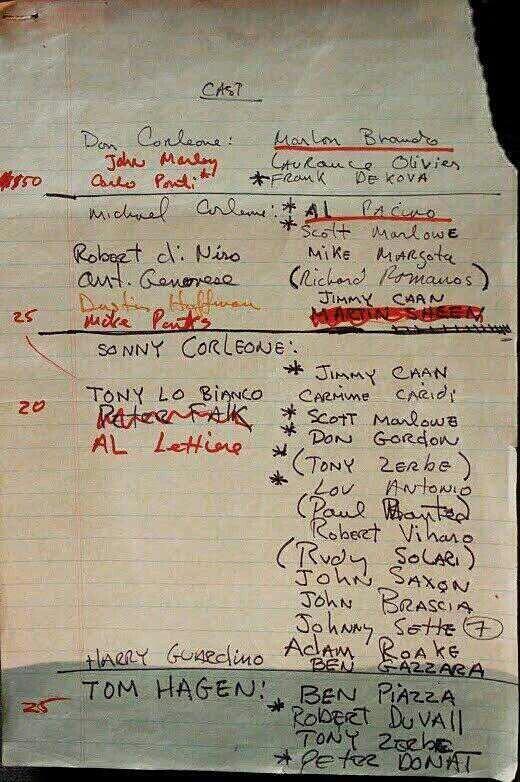 CAST
Don Corleone: Marlon Brando
John Marley Laurance Olivier
$850 Carlo Ponti * *FRANK DEKOVA
Michael Corleone: * AL PACINO
* Scott MARLOWE
Robert di Niro MIKE MARGOTA
Ant. Genovese (Richard Romanos)
Dustin Huffman JIMMY CAAN
25 Mike Parks MARTIN SHEEN
SONNY CORLEONE:
* JIMMY CAAN
TONY LO BIANCO CARMINE CARIDI
20 Peter FALK * Scott MARLOWE
AL Lettiere * DON GORDON
* (TONY ZERBE)
* LOU ANTONIO
(Paul)
Robert Viharo
(RUDY SOLARI)
JOHN SAXON
JOHN BRASCIA
Johnny Sette 7
Adam ROAKE
HARRY GUARDINO BEN GAZZARA
TOM HAGEN: BEN PIAZZA
25 * ROBERT DUVAll
TONY ZERBE
* PETER DONAT